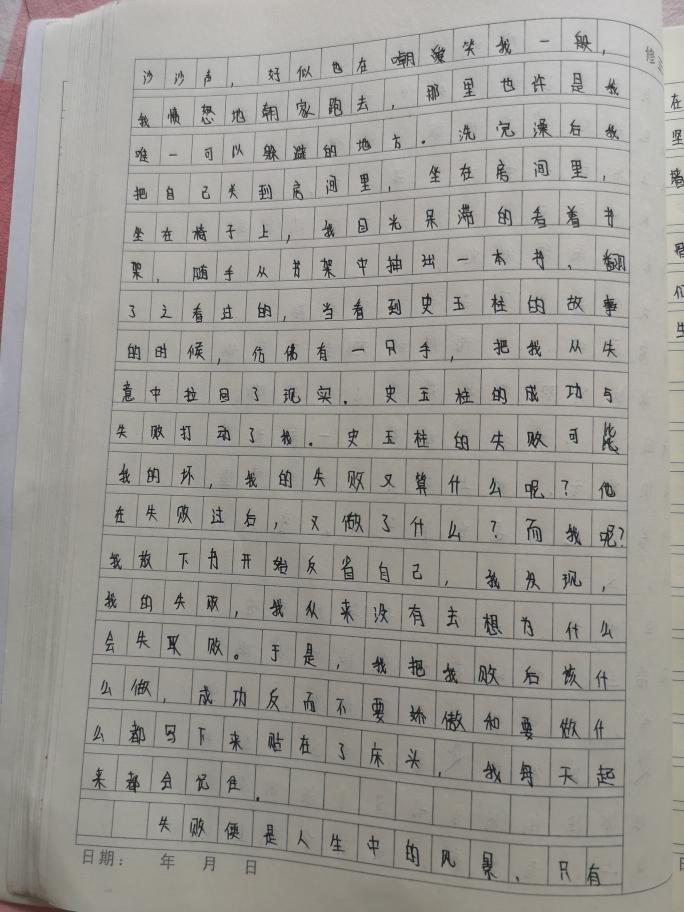 沙沙声，好似也在嘲笑我一般，
我愤怒地朝家跑去，那里也许是我
唯一可以躲避的地方。洗完澡后我
把自己关到房间里，坐在房间里，
坐在椅子上，我目光呆滞的看着书
架，随手从书架中抽出一本书，翻
了之看过的，当看到史玉柱的故事
的时候，仿佛有一只手，把我从失
意中拉回了现实。史玉柱的成功与
失败打动了我。史玉柱的失败可比
我的坏，我的失败又算什么呢？他
在失败过后，又做了什么？而我呢？
我放下书开始反省自己，我发现，
我的失败，我从来没有去想为什么
会失败。于是，我把我败后该什
么做，成功反而不要娇傲和要做什
么都写下来贴在了床头，我每天起
来都会记住。
失败便是人生中的风景，只有
日期： 年 月 日
在
坚
墙
们
生